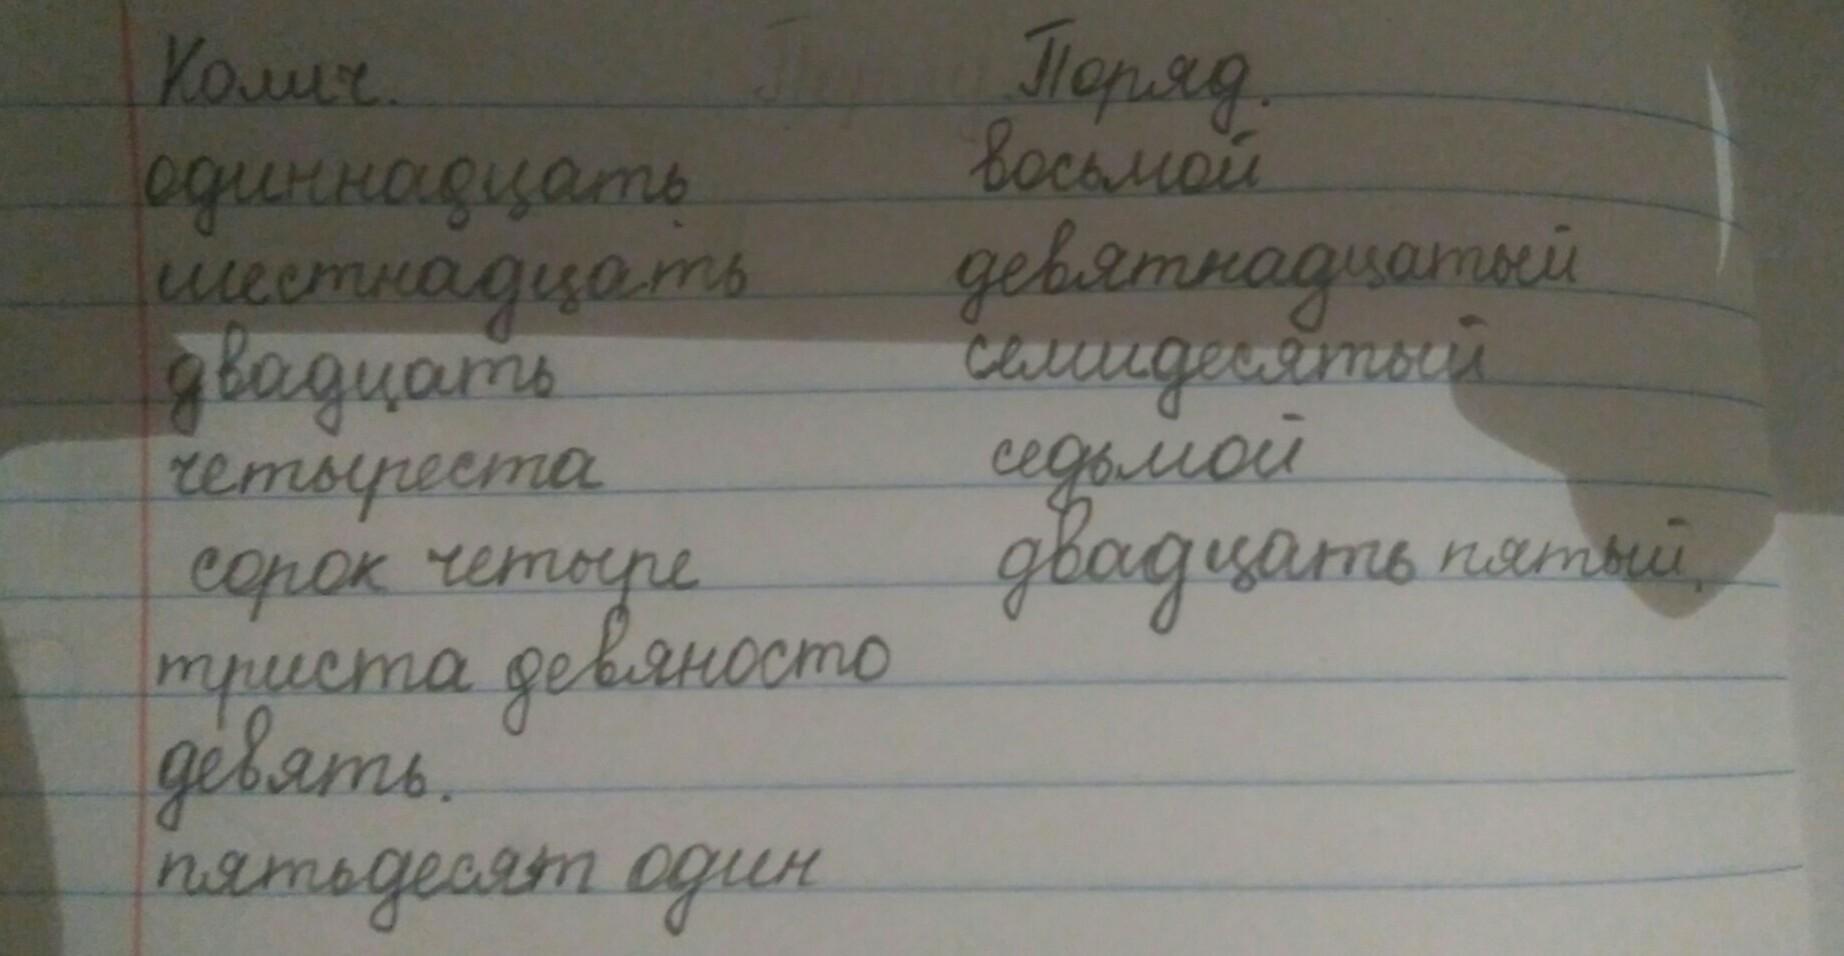 Колич. Поряд.
одиннадцать восьмой
шестнадцать девятнадцатый
двадцать семидесятый
четыреста седьмой
сорок четыре двадцать пятый.
триста девяносто
девять.
пятьдесят один